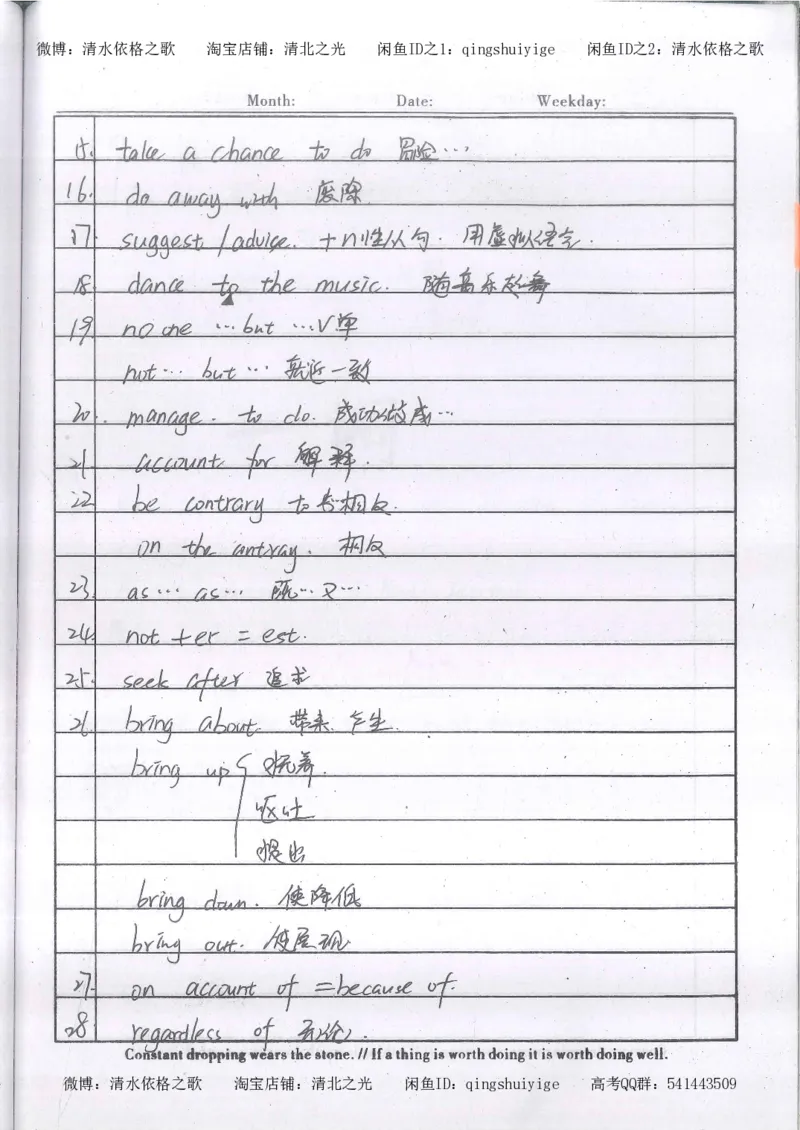 微博：清水依格之歌 淘宝店铺：清北之光 闲鱼ID之1：qingshuiyige 闲鱼ID之2：清水依格之歌
Month: Date: Weekday:
15. take a chance to do 冒险…
16. do away with 废除
17. suggest / advise. +n性从句. 用虚拟语气.
18. dance to the music. 随音乐起舞
19. no one …but …V单
not… but… 就近一致
20. manage. to do. 成功做成…
21. account for 解释.
22. be contrary to 与相反.
on the antray. 相反
23. as… as… 既…又…
24. not +er = est.
25. seek after 追求
26. bring about. 带来. 产生.
bring up { 抚养.
呕吐
提出
bring down. 使降低
bring out. 使展现
27. on account of = because of.
28. regardless of 无论.
Constant dropping wears the stone. // If a thing is worth doing it is worth doing well.
微博：清水依格之歌 淘宝店铺：清北之光 闲鱼ID：qingshuiyige 高考QQ群：541443509